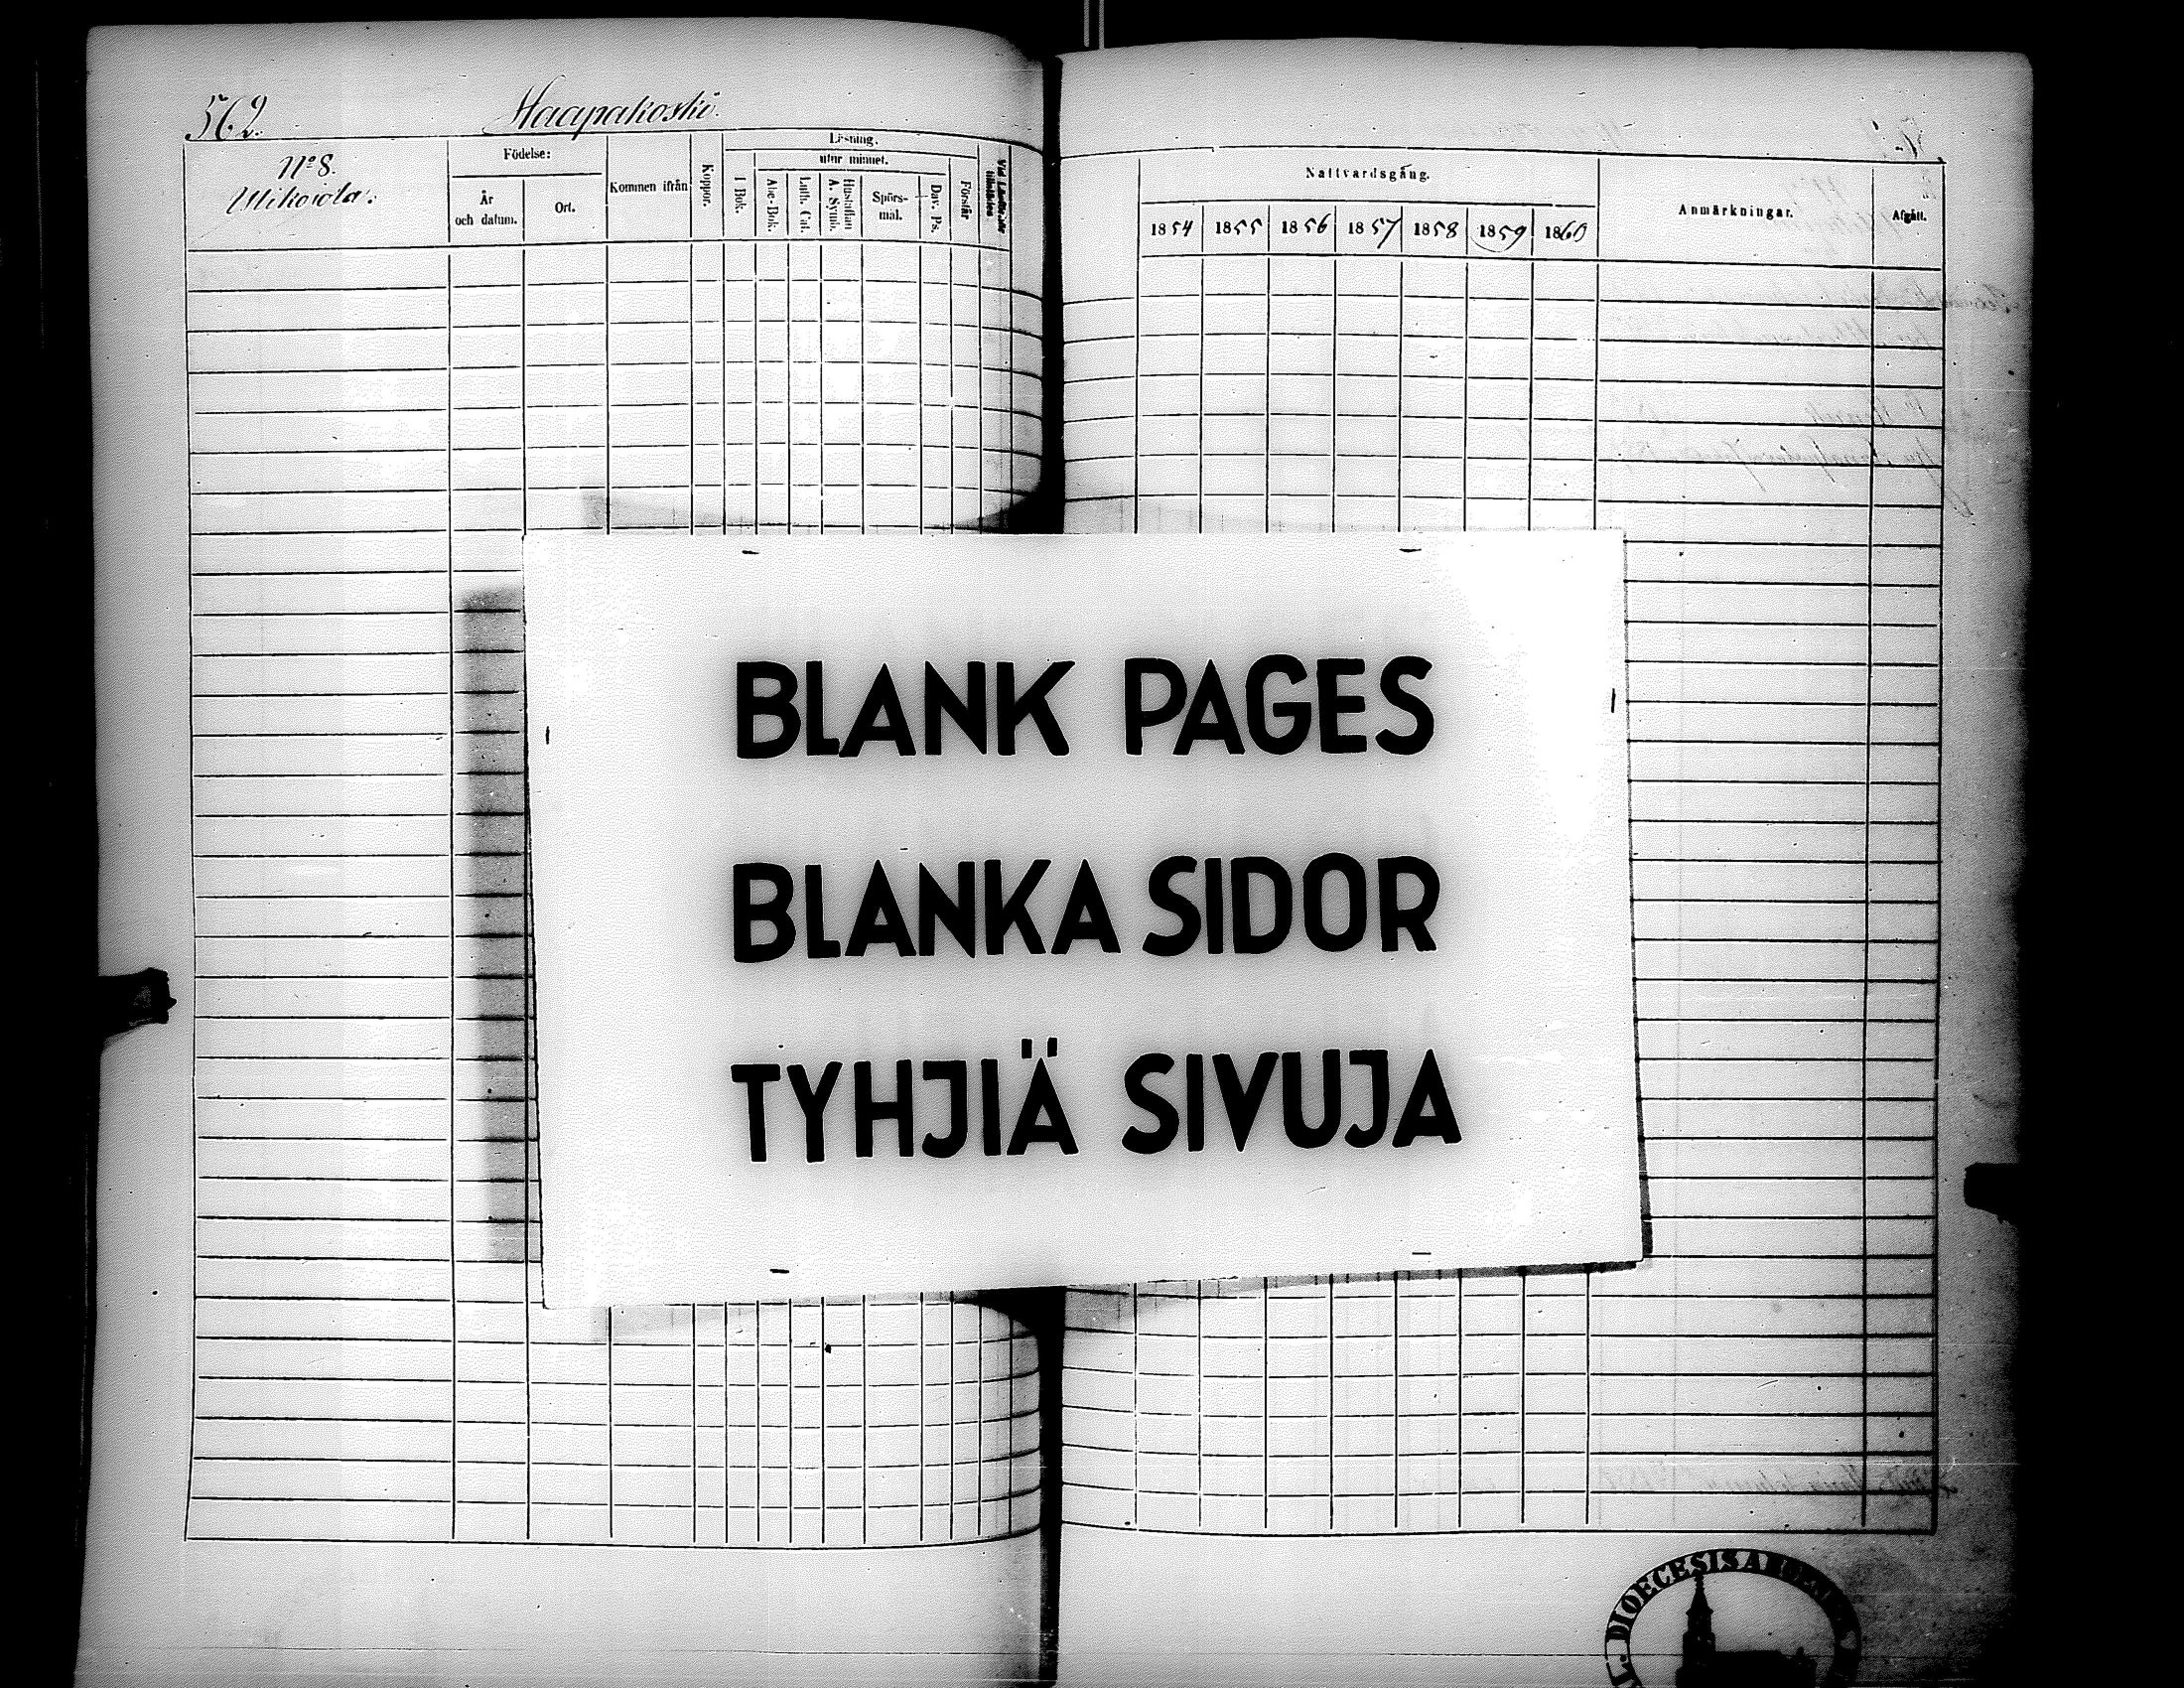 562. Haapakoski.
No 8.
Födelse:
Kommen ifrån
Koppor.
Läsning.
utur minnet.
År
och datum.
Ort.
I Bok.
Abc-Bok.
Luth. Cat.
Hustaflan
A. Symb.
Spörs-
mål.
Dav. Ps.
Förstår
Nattvardsgång.
1854 1855 1856 1857 1858 1859 1860
Anmärkningar.
Afgått.
BLANK PAGES
BLANKA SIDOR
TYHJIÄ SIVUJA